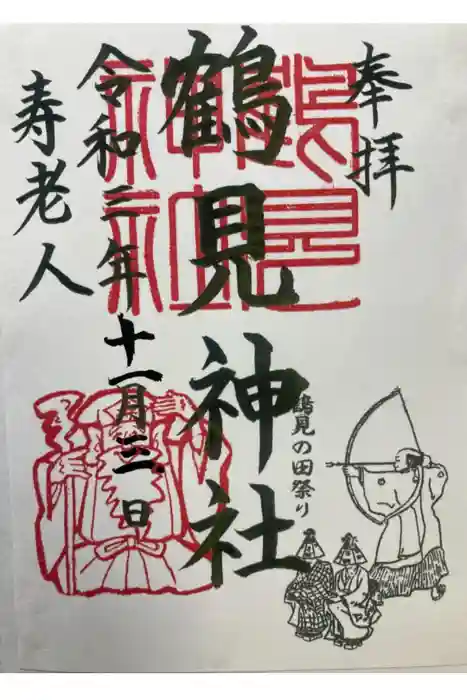 奉拝
鶴見神社
鶴見の田祭り
令和三年十一月三日
寿老人
鶴見
神社